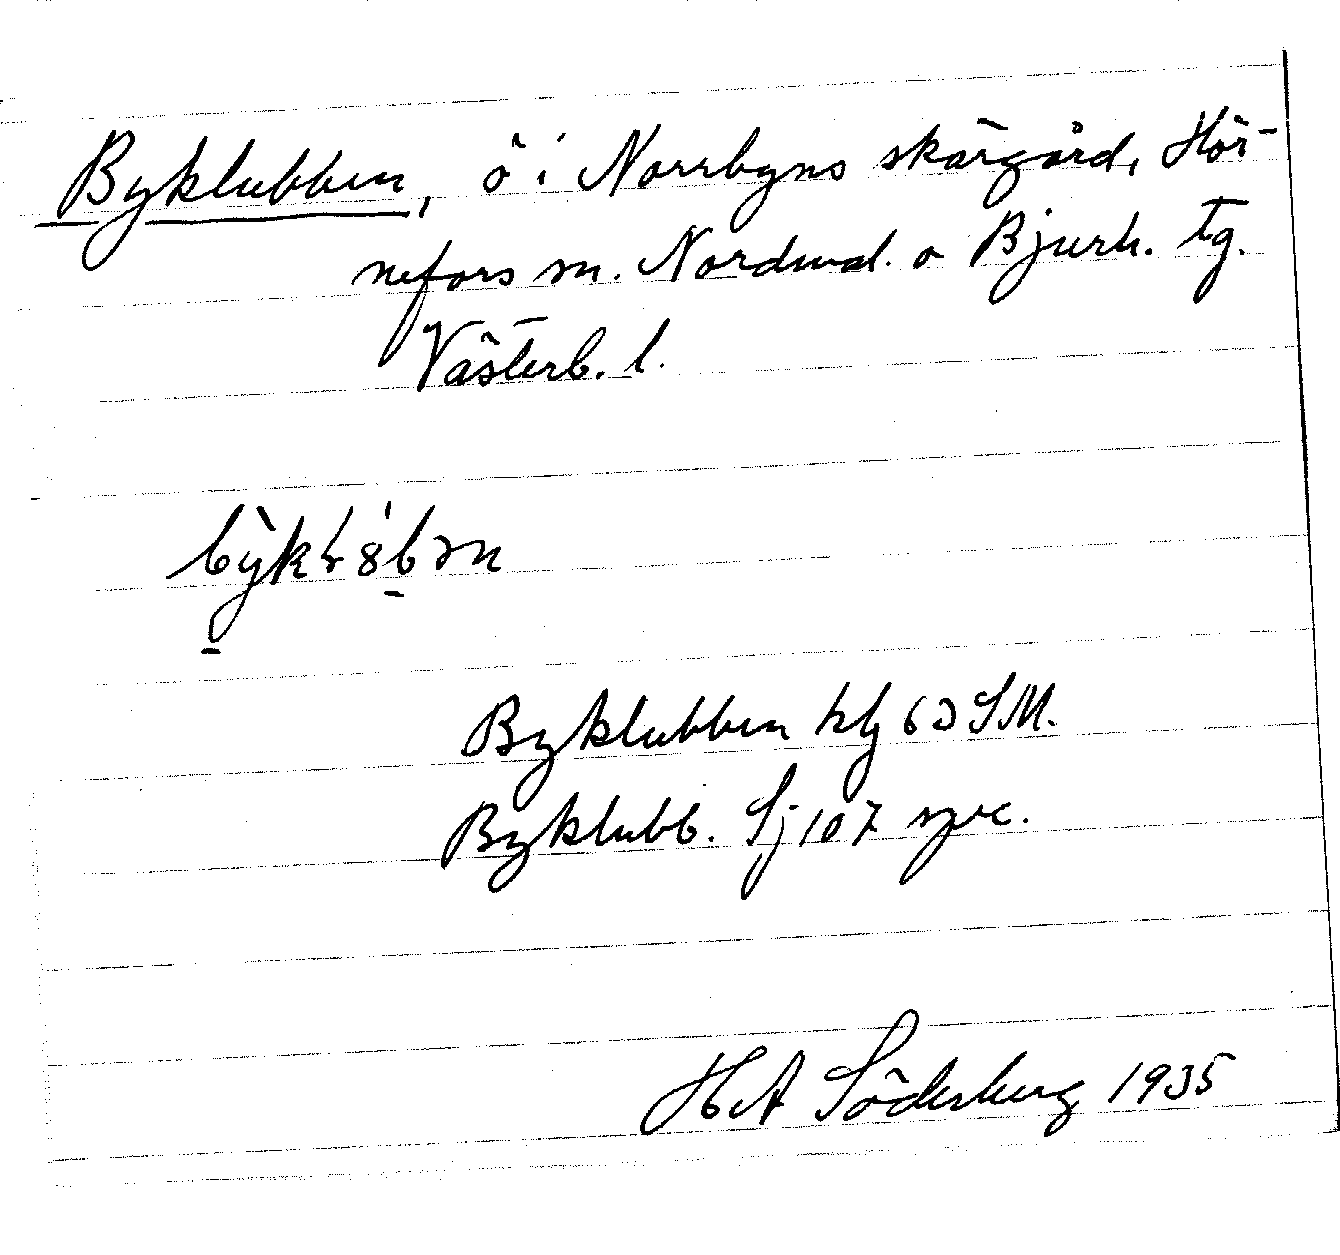 Byklubben, ö i Norrbyns skärgård, Hör-
nefors sn. Nordmal. o Bjurh. tg.
Västerb. l.
Byklubben
Byklubb. Sj 107
HA Söderberg 1935